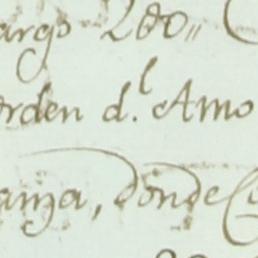 argo 280,,
orden d.l Amo
anza, donde